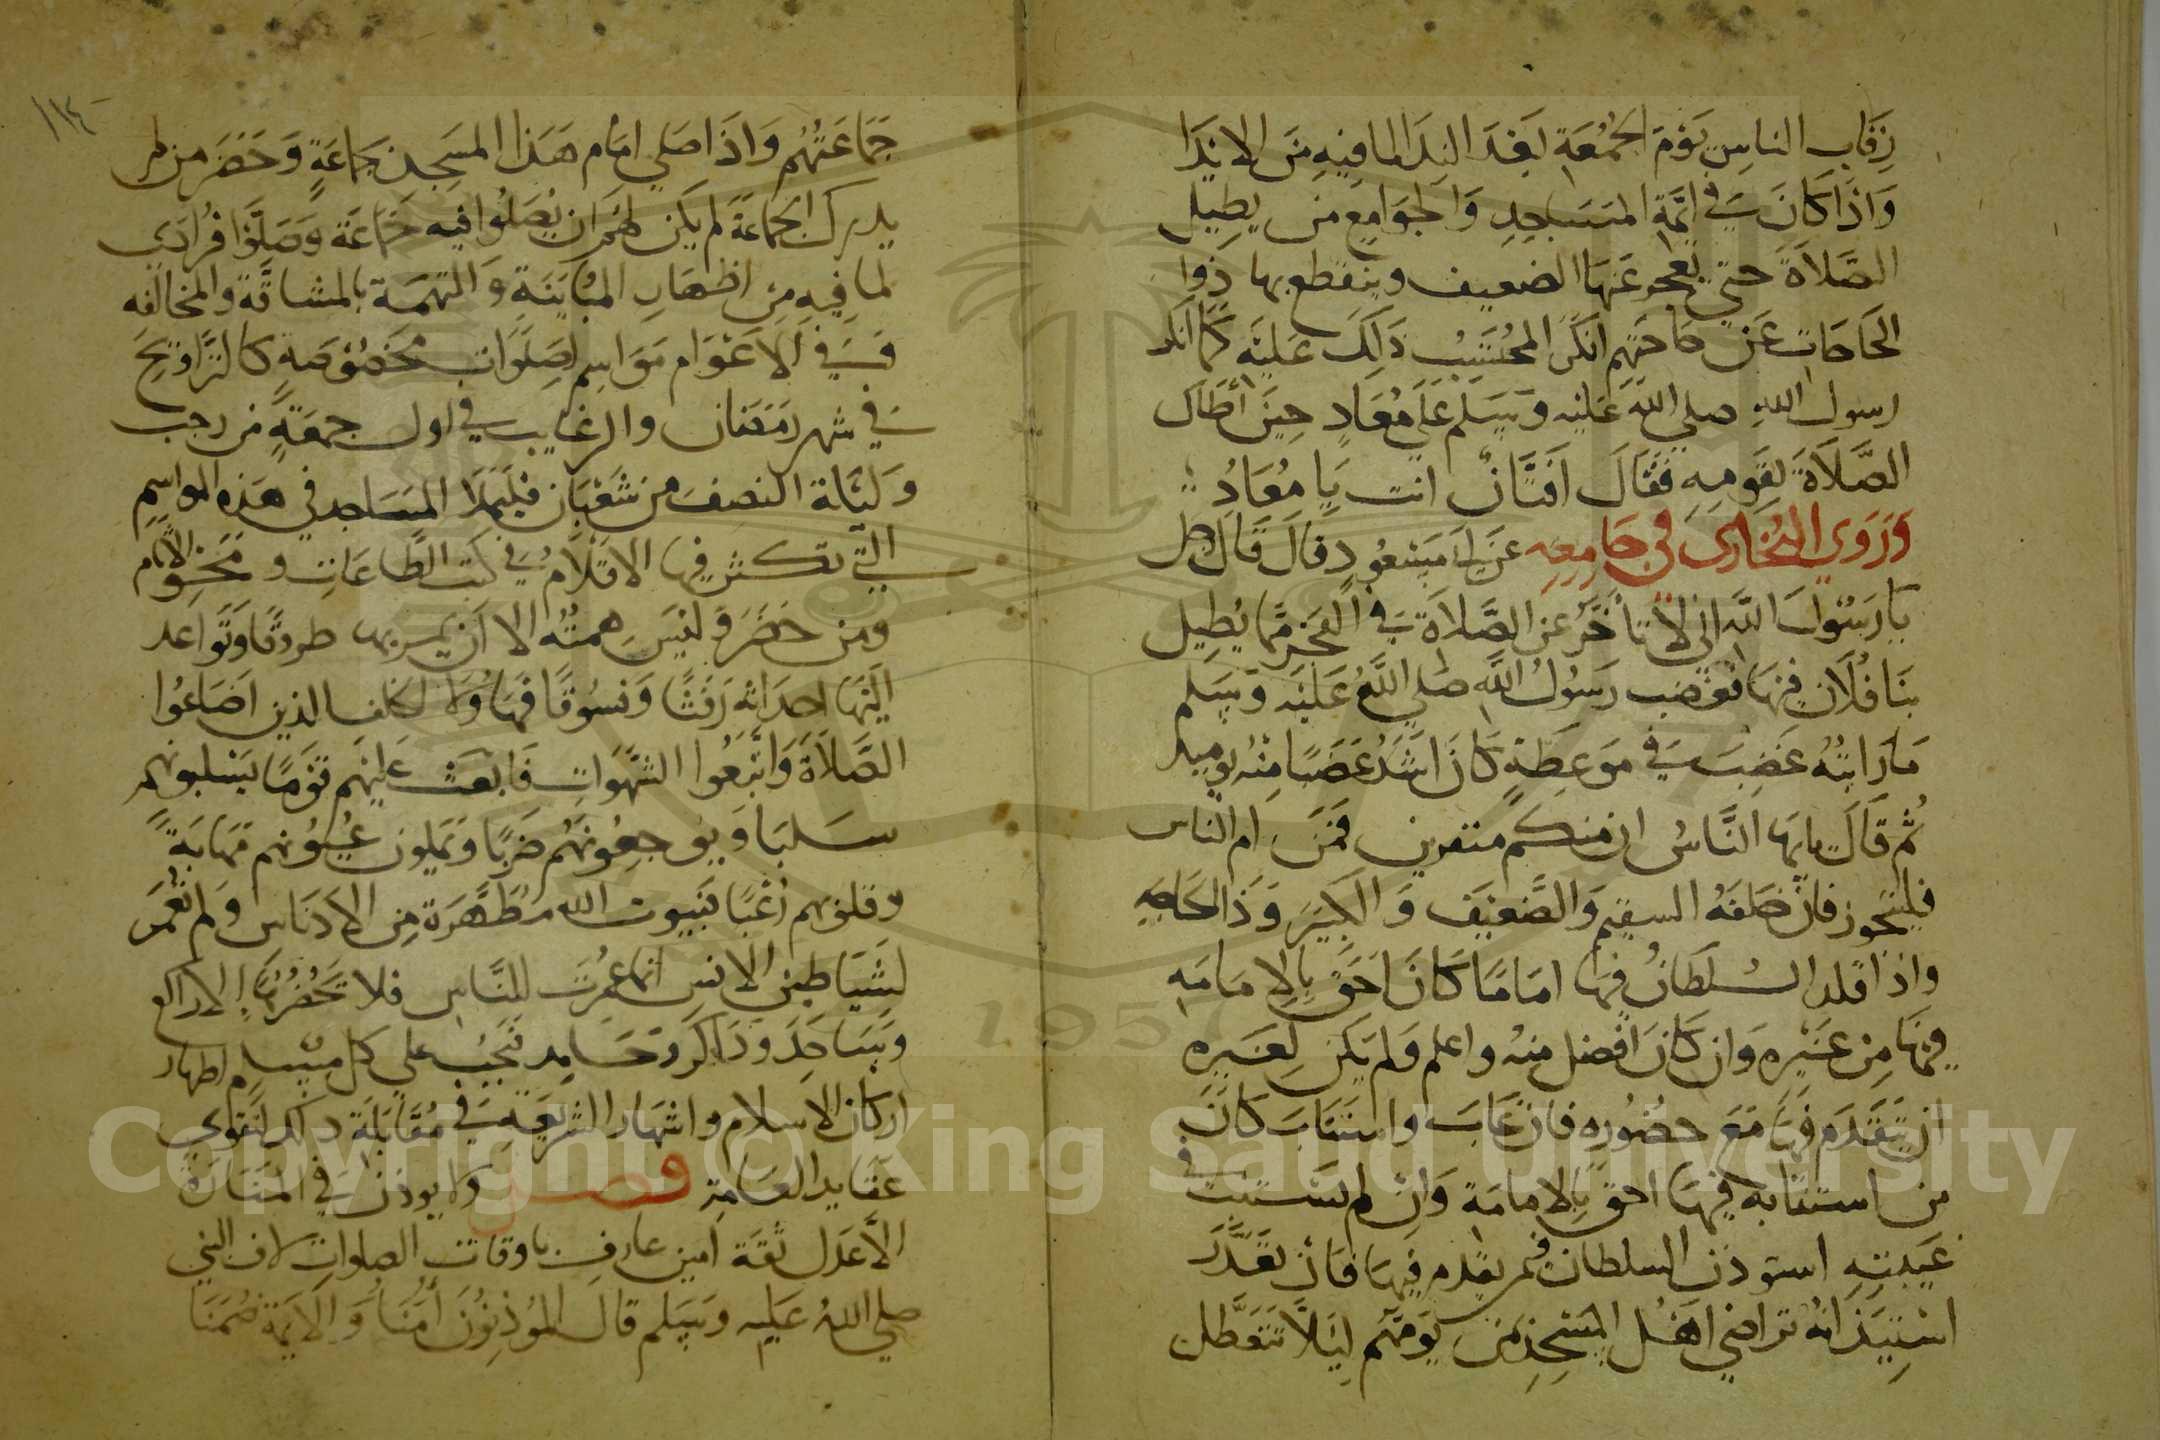 رقاب الناس يوم الجمعة بغد الندا لما فيه من الايذا
واذا كان في ائمة المساجد والجوامع من يطيل
الصلاة حتى يعجز عنها الضعيف وينقطع بها ذوا
الحاجات عن حاجتهم انكر المحتسب ذلك عليه كما انكر
رسول الله صلي الله عليه وسلم علي معاد حين أطال
الصلاة لقومه فقال افتان انت يا معاد
وروي البخاري في جامعه عن ابي مسعود قال قال رجل
يا رسول الله اني لا تأخر عن الصلاة في الفجر مما يطيل
بنا فلان فيها فغضب رسول الله صلي الله عليه وسلم
ما رايته غضب في موعظة كان اشد غضبا منه يوميد
ثم قال يايها الناس ان منكم منفرين فمن ام الناس
فليتجوز فان خلفه السقيم والضعيف والكبير وذا الحاجه
واذا قلد السلطان فيها اماما كان احق بالامامه
فيها من غيره وان كان افضل منه واعلم ولم يكن لغيره
ان يتقدم فيها مع حضوره فان غاب واستناب كان
من استنابه فيها احق بالامامة وان لم يستنب في
غيبته استوذن السلطان فمن يقدم فيها فان تعذر
استيذانه تراضي اهل المسجد من يومهم ليلا تتعطل
١١٤
جماعتهم واذا صلي امام هذا المسجد جماعة وحضر من لم
يدرك الجماعة لم يكن لهم ان يصلوا فيه جماعة وصلوا فرادي
لما فيه من اظهار المباينة والتهمة بالمشاقة والمخالفه
وفي الاعوام مواسم لصلوات مخصوصة كالتراويح
في شهر رمضان والرغايب في اول جمعة من رجب
وليلة النصف من شعبان فليملا المساجد في هذه المواسم
التي تكثر فيها الاقلام في كتب الطاعات ومحو الاثام
ومن حضر وليس همته الا ان يمر بها طروقا وتواعد
اليها احداثه رفثا وفسوقا فهاولا لخلف الذين اضاعوا
الصلاة واتبعوا الشهوات فابعث عليهم قوما يسلبونهم
سلبا ويوجعونهم ضربا ويملون عيونهم مهابة
وقلوبهم رعبا فبيوت الله مطهرة من الادناس ولم تعمر
لشياطين الانس انما عمرت للناس فلا تحضرها الا راكع
وساجد وذاكر وحامد فيجب علي كل مسلم اظهار
اركان الاسلام واشهار الشريعة في مقابلة ذلك لتقوي
عقايد العامة فصل ولا يوذن في المنارة
الا عدل ثقة امين عارف باوقات الصلوات لان النبي
صلي الله عليه وسلم قال المؤذنون أمنا والايمة ضمنا
Copyright © King Saud University
1957